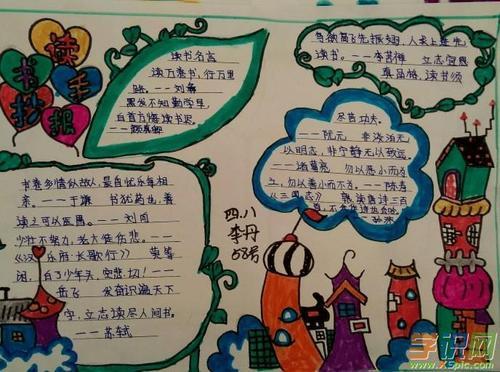 读书手抄报
读书名言
读万卷书，行万里
路。——刘彝
黑发不知勤学早，
白首方悔读书迟。
——颜真卿
鸟欲高飞先振翅，人求上进先
读书。——李苦禅 立志宜思
真品格，读书须
尽苦功夫。
——阮元 非淡泊无
以明志，非宁静无以致远。
——诸葛亮 勿以恶小而为
之，勿以善小而不为。——陈寿
《三国志》 熟读唐诗三百
首，不会作诗也会吟。
孙洙
书卷多情似故人，晨昏忧乐每相
亲。——于谦 书犹药也，善
读之可以医愚。——刘向
少壮不努力，老大徒伤悲。——
《汉乐府·长歌行》 莫等
闲，白了少年头，空悲切！——
岳飞 发奋识遍天下
字，立志读尽人间书。
——苏轼
四.八
李丹
58号
学识网
www.xspic.com